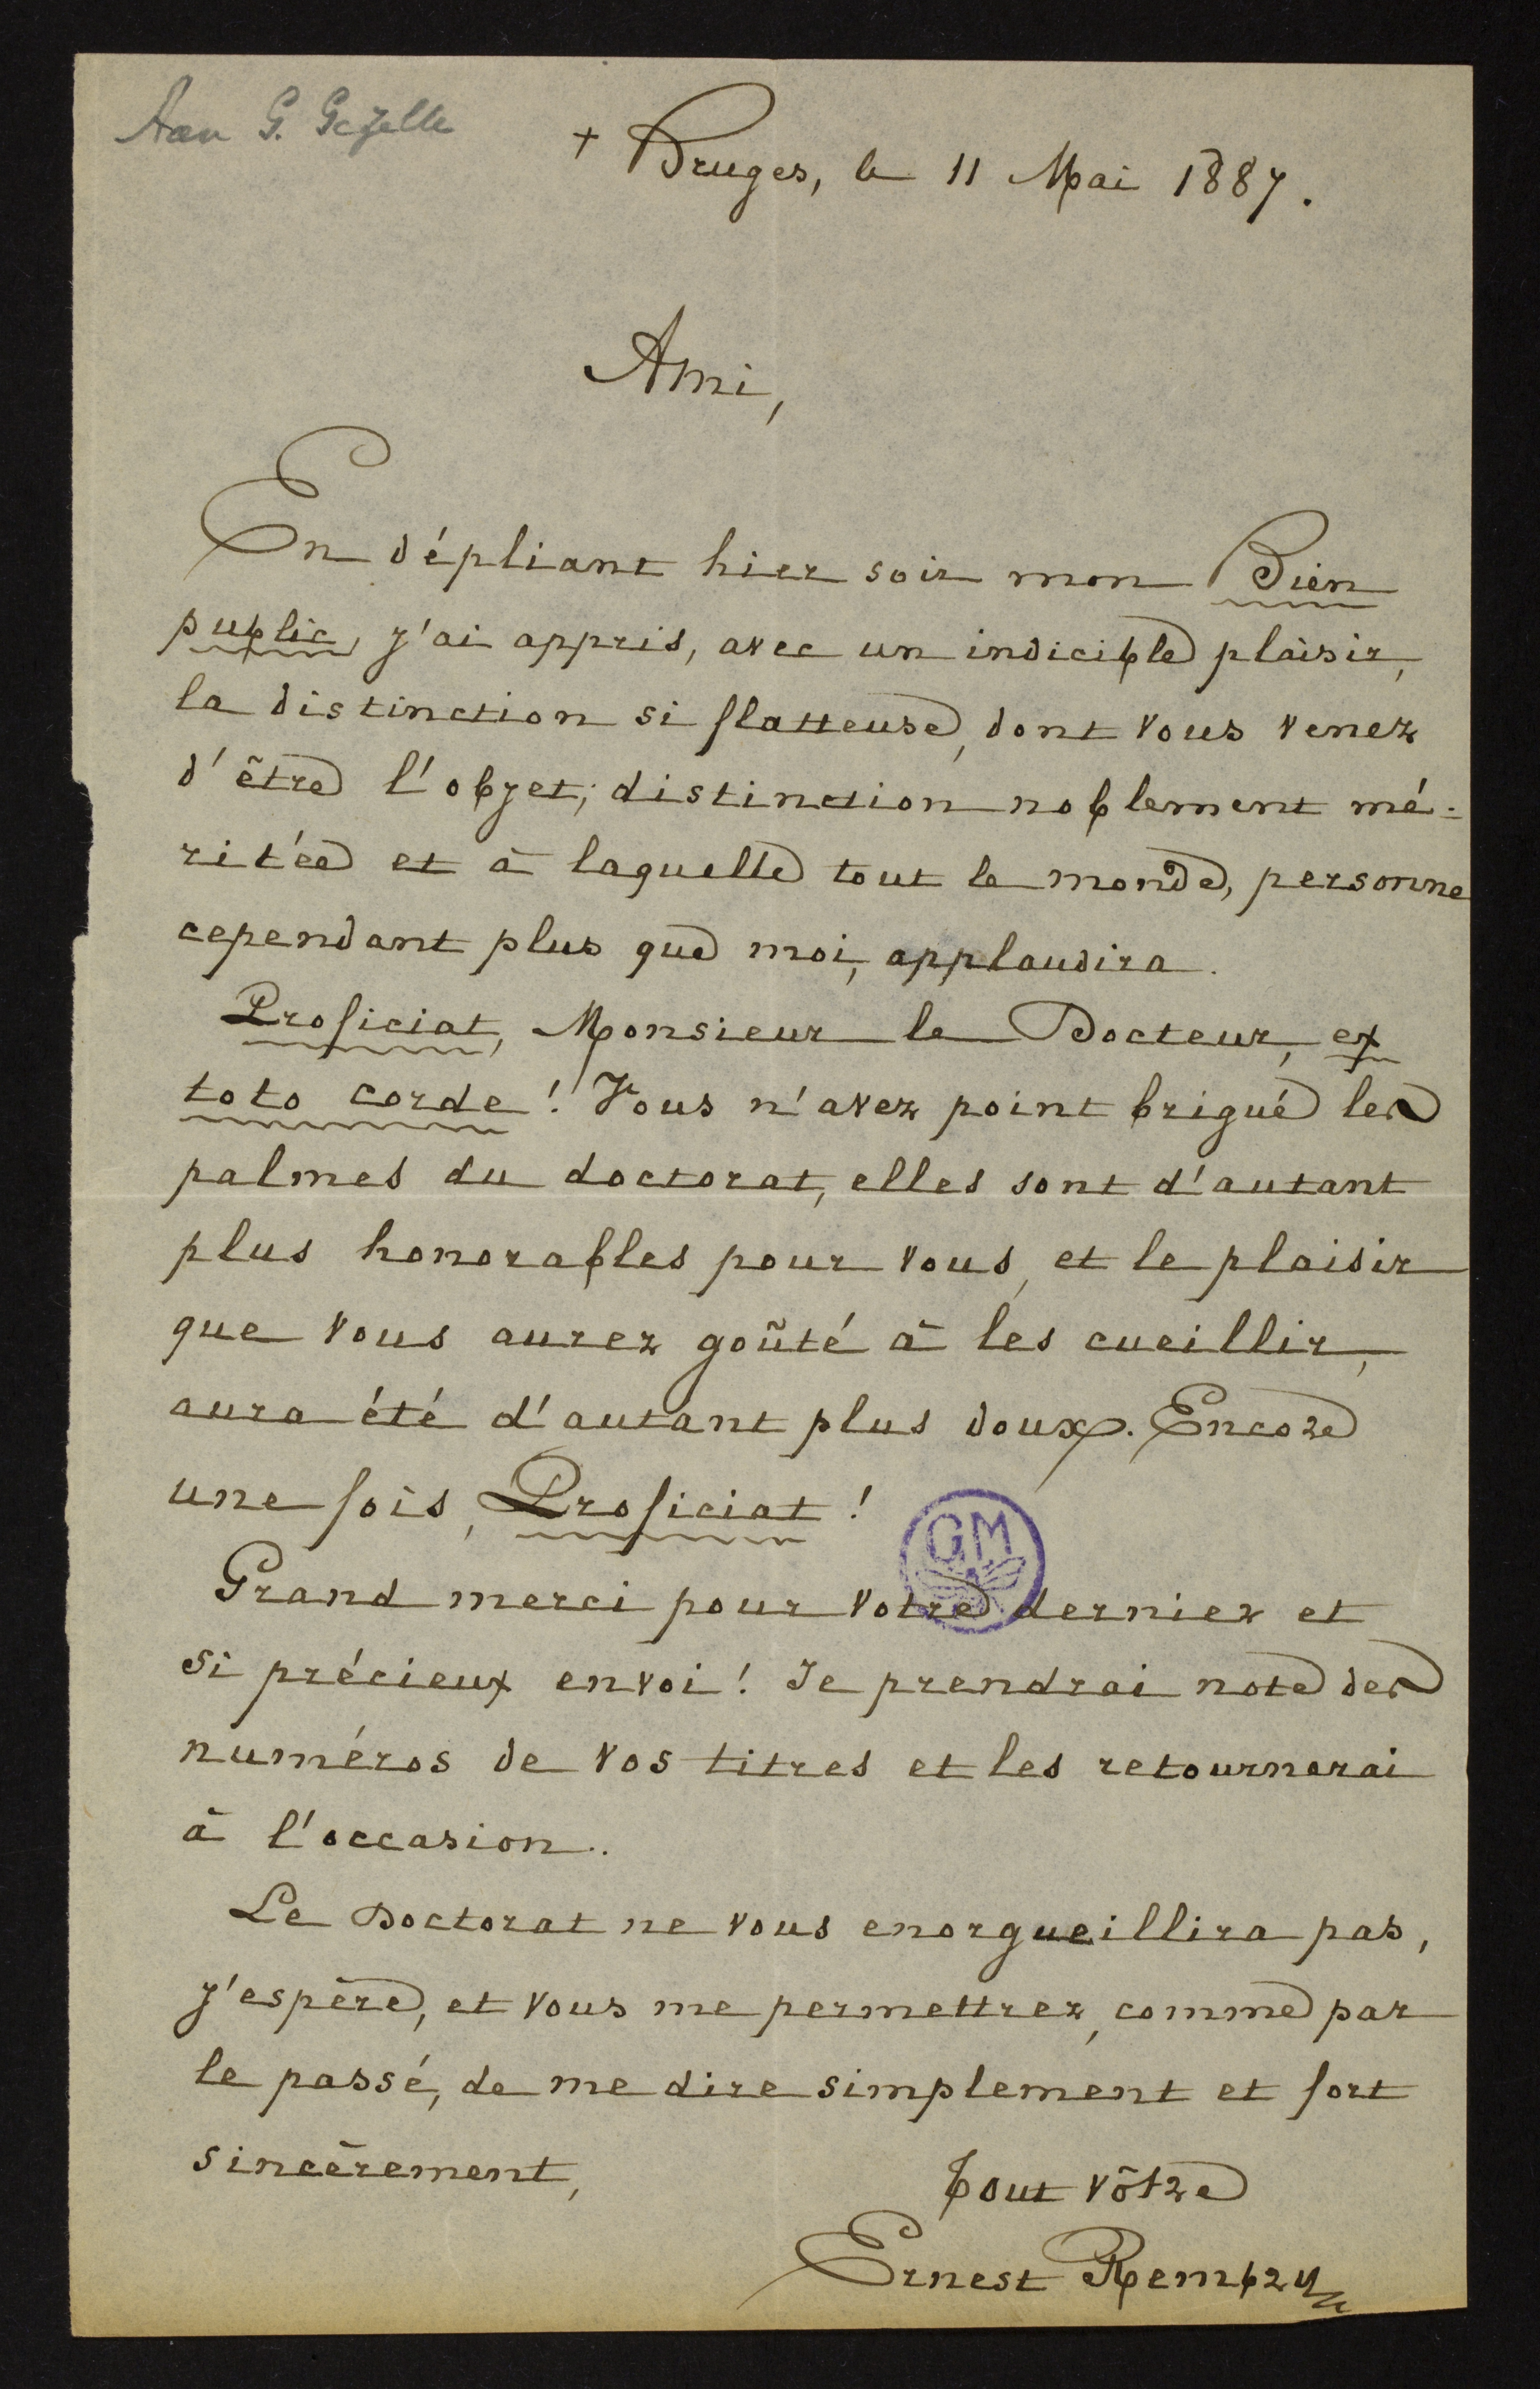 Aan G. Gezelle
+ Bruges, le 11 Mai 1887.
Ami,
En dépliant hier soir mon Bien
public, j'ai appris, avec un indicible plaisir,
la distinction si flatteuse, dont vous venez
d'être l'objet; distinction noblement mé-
ritée et à laquelle tout le monde, personne
cependant plus que moi, applaudira.
Proficiat, Monsieur le Docteur, ex
toto corde! Vous n'avez point brigué les
palmes du doctorat, elles sont d'autant
plus honorables pour vous, et le plaisir
que vous aurez goûté à les cueillir,
aura été d'autant plus doux. Encore
une fois, Proficiat!
GM
Grand merci pour votre dernier et
si précieux envoi! Je prendrai note des
numéros de vos titres et les retournerai
à l'occasion..
Le Doctorat ne vous enorgueillira pas,
j'espère, et vous me permettrez, comme par
le passé, de me dire simplement et fort
sincèrement,
Tout vôtre
Ernest Rembry